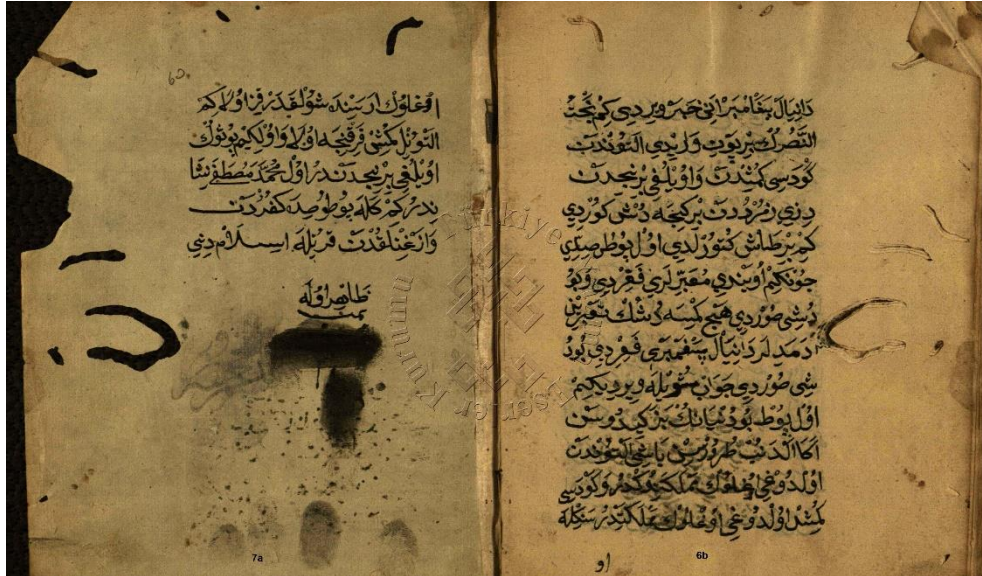 دانيال پيغامبر اني خبر ويردي كم بخت
النصرك بر بوتي واريدي التوندن
كودسي كمشدن و اويلغي برنجدن
ديزي دمردن بر كيجه دش كوردي
كم بر طاش كتورلدي اول بوطي صيدي
چونكم اويندي معبرلري قغردي و بو
دشي صوردي هيچ كمسه دشك تعبيرين
ادمديلر دانيال پيغمبري قغردي بو د
شي صوردي جواب شويله ويرديكم
اول بوط بو دنيانك
اكا الدنب طرورسن باشي التوندن
اولدوغي مملكتيدر و كودسي
كمشدن اولدوغي اوغلوك مملكتيدر سنكله
او
6b
60
اوغلوك ارسنده شولقدر فرق اولا كم
التونيل كمش فرقنجه اولا و اولكم بوتوك
اويلغي برنجدندر اول محمد مصطفى نشا
نيدر كم كله بو كفردن
و ازغنلقدن قرتله اسلام ديني
ظاهر اوله
تمت
7a
Türkiye Eserler Kurumu